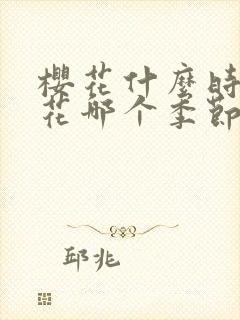 櫻花什麼時
花哪个季節
邱兆